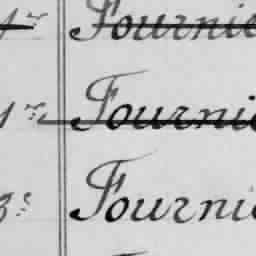 1er Fournie
1er Fournie
3e Fournie